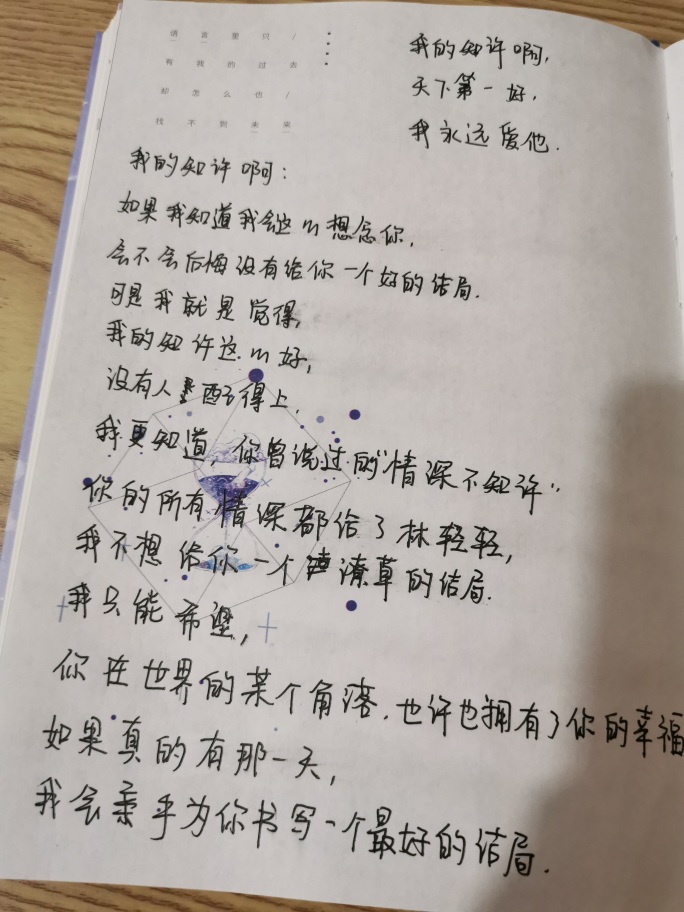 语言里只/
有我的过去
却怎么也/
找不到未来
我的知许啊，
天下第一好，
我永远爱他.
我的知许啊：
如果我知道我会这m想念你，
会不会后悔没有给你一个好的结局.
可是我就是觉得，
我的知许这m好，
没有人配得上，
我更知道，你曾说过的“情深不知许”
你的所有情深都给了林轻轻，
我不想给你一个潦草的结局.
我只能希望，
你在世界的某个角落，也许也拥有了你的幸福
如果真的有那一天，
我会亲手为你书写一个最好的结局.